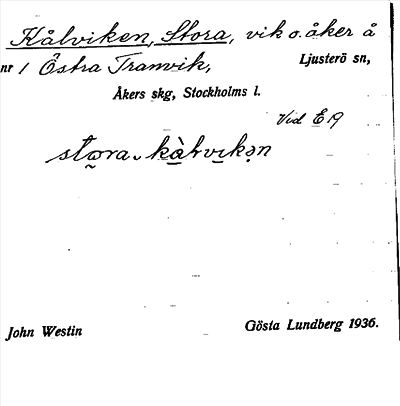 Kålviken, Stora, vik o. åker å
nr 1 Östra Tranvik, Ljusterö sn,
Åkers skg, Stockholms l.
Vid E19
stora kålvikən
John Westin Gösta Lundberg 1936.